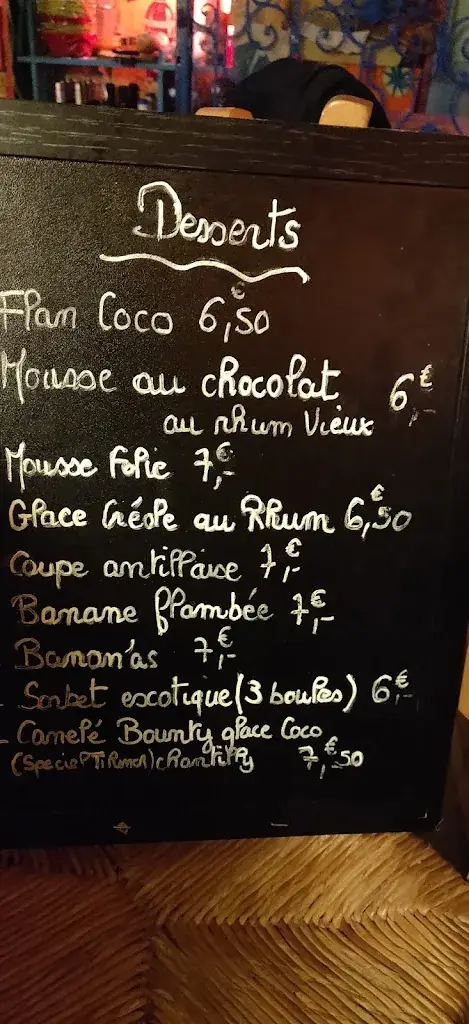 Desserts
Flan Coco 6,€50
Mousse au chocolat 6,€-
au rhum Vieux
Mousse Folie 7,€-
Glace Créole au Rhum 6,€50
Coupe antillaise 7,€-
Banane flambée 7,€-
Banan'as 7,€-
- Sorbet escotique (3 boules) 6,€-
- Canelé Bounty glace Coco
(Special Ti Rumer) chantilly 7,€50